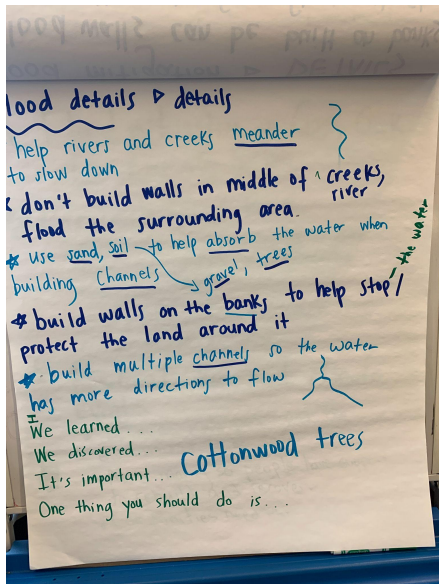 lood details ▷ details
help rivers and creeks meander
to slow down
* don't build walls in middle of ^ creeks,
river
flood the surrounding area.
* use sand, soil to help absorb the water when
building channels gravel, trees
* build walls on the banks to help stop/
the water
protect the land around it
* build multiple channels so the water
has more directions to flow
I
We learned...
We discovered...
It's important...
Cottonwood trees
One thing you should do is...